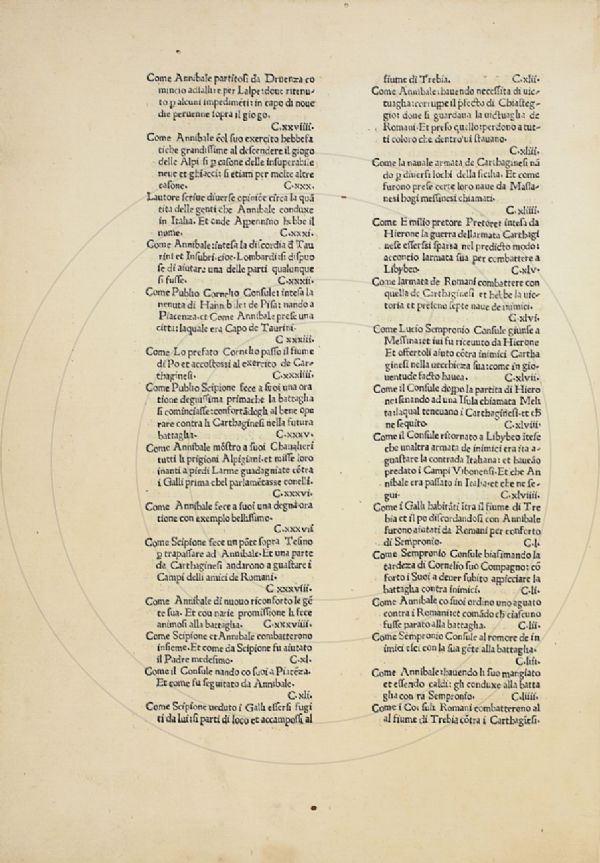 Come Annibale partitosi da Druenza co
mincio adialire per Lalpe: doue ritenu
to p alcuni impedimēti: in capo di noue
die peruenne sopra il giogo.
C.xxviiii.
Come Annibale cōl suo exercito hebbe fa
tiche grandissime al descendere il giogo
delle Alpi si p casone delle insuperabile
neue et ghiaccia si etiam per molte altre
casone. C.xxx.
Lautore scriue diuerse opinióe circa la quā
tita delle genti che Annibale conduxe
in Italia. Et onde Appennino hebbe il
nome. C.xxxi.
Come Annibale: intesa la discordia đ Tau
rini et Insubri. cioe. Lombardi: si dispuo
se di aiutare una delle parti qualunque
si fusse. C.xxxii.
Come Publio Cornelio Consule: intesa la
uenuta di Hannibal et de Pisa: nando a
Piacenza. et Come Annibale prese una
citta: laquale era Capo de Taurini.
C.xxxiii.
Come Lo prefato Cornelio passo il fiume
di Po et accostossi al exercito de Car-
thaginesi. C.xxxiiii.
Come Publio Scipione fece a suoi una ora
tione degnissima prima che la battaglia
si cominciasse: confortādogli al bene ope
rare contra li Carthaginesi nella futura
battaglia. C.xxxv.
Come Annibale mōstro a suoi Chauaheri
tutti li prigioni Alpigiani. et misse loro
inanti a piedi Larme guadagniate cōtra
i Galli prima chel parlamētasse conelli.
C.xxxvi.
Come Annibale fece a suoi una degna ora
tione con exemplo bellissimo.
C.xxxvii
Come Scipione fece un pōte sopra Tesino
p trapassare ad Annibale. Et una parte
da Carthaginesi andarono a guastare i
Campi delli amici de Romani.
C.xxxviii.
Come Annibale di nuouo riconforto le gē
te sua. Et cou uarie promissione li fece
animosi alla battaglia. C.xxxviiii.
Come Scipione et Annibale combatterono
insieme. Et come da Scipione fu aiutato
il Padre medesimo. C.xl.
Come il Consule nando co suoi a Piacēza.
Et come fu seguitato da Annibale.
C.xli.
Come Scipione ueduto i Galli essersi fugi
ti da lui: si parti di loco et accampossi al
fiume di Trebia. C.xlii.
Come Annibale: hauendo necessita di uic-
tuagha: corrupe il p̄fecto di Chiasteg-
gio: doue si guardaua la uictuagha de
Romani. Et preso quello: perdono a tut-
ti coloro che dentro ui stauano.
C.xliii.
Come la nauale armata de Carthaginesi nā
do p diuersi lochi della sicilia. Et come
furono prese certe loro naue da Massa-
nesi hogi messinesi chiamati.
C.xliiii.
Come Emilio pretore Pretore: intesa da
Hierone la guerra dellarmata Carthagi
nese essersi sparsa nel predicto modo:
acconcio larmata sua per combattere a
Libybeo. C.xlv.
Come larmata de Romani combattere con
quella de Carthaginesi et hebbe la uic-
toria et preseno septe naue de inimici.
C.xlvi.
Come Lucio Sempronio Consule giunse a
Messina: et iui fu riceuuto da Hierone
Et offertoli aiuto cōtra inimici Cartha
ginesi nella uecchieza sua: come in gio-
uentude facto haueа. C.xlvii.
Come il Consule depo la partita di Hiero
ne: isenando ad una Isula chiamata Meli
ta: laqual teneuano i Carthaginesi. et cħ
ne sequito. C.xlviii.
Come il Consule ritornato a Libybeo ītese
che unaltra armata de inimici era ita a-
guastare la contrada Italiana: et haueāo
predato i Campi Vibonensi. Et che An
nibale era passato in Italia. et che ne se-
gui. C.xlviiii.
Come i Galli habitāti ītra il fiume di Tre
bia et il po discordandosi con Annibale
furono aiutati da Romani per conforto
di Sempronio. C.l.
Come Sempronio Consule biasimando la
tardeza di Cornelio suo Compagno: cō
forto i Suoi a deuer subito appicciare la
battagha contra inimici. C.li.
Come Annibale co suoi ordino uno aguato
contra i Romani: et comādo cħ ciascuno
fusse parato alla battagha. C.lii.
Come Sempronio Consule al romore de in
imici esci con la sua gēte alla battagha.
C.liii.
Come Annibale: hauendo li suo mangiato
et essendo caldi: gli conduxe alla batta
gha contra Sempronio. C.liiii.
Come i Consuli Romani combatterono al
al fiume di Trebia cōtra i Carthagiesi.